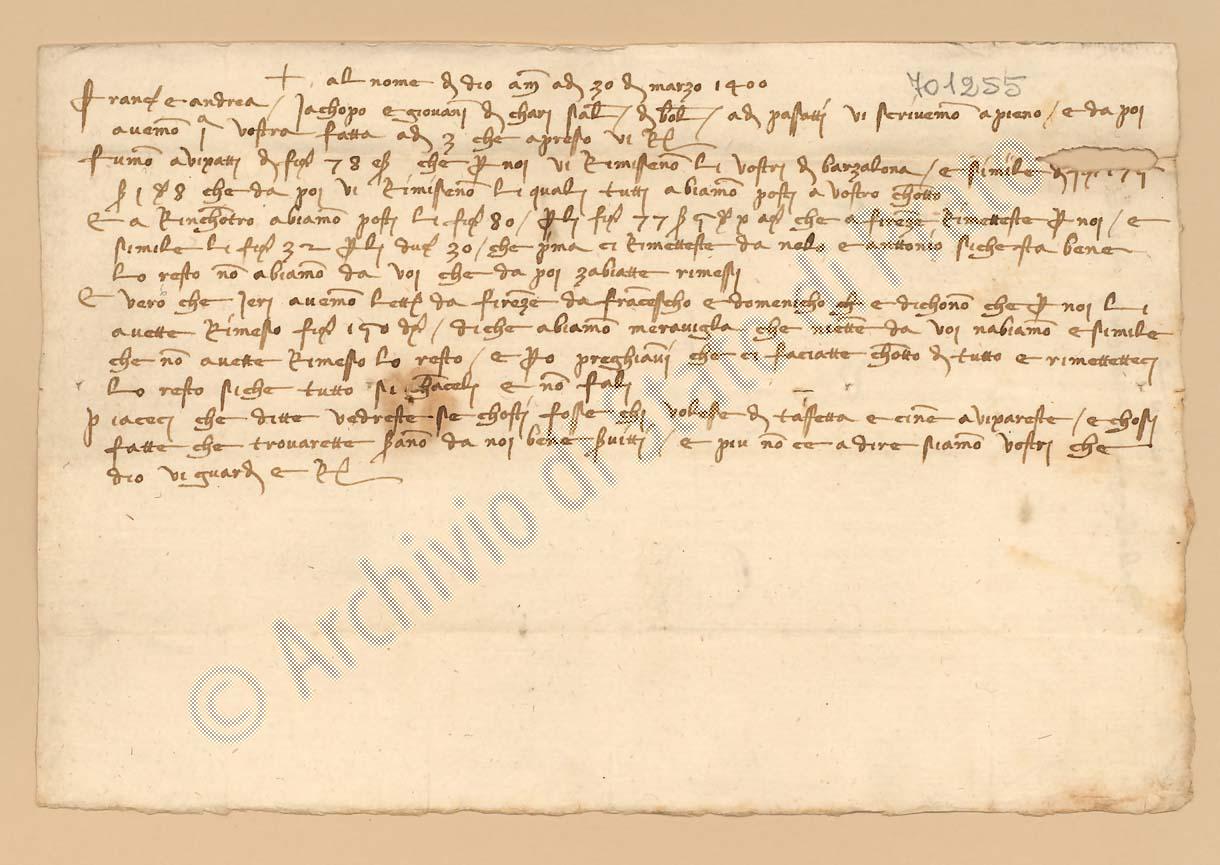 + al nome di dio am adi 30 di marzo 1400
701255
Franc e andrea / Jachopo e giovani di chari sal / di bol / adi passatti vi scrivemo apieno / e da poi
avemo i vostra fatta adi 3 che apresso vi R
fumo avipatti di fi 78 che per noi vi Rimisseno li vostri di barzalona / e simile di
8 che da poi vi Rimisseno li quali tutti abiamo posti a vostro chotto
E a Rinchotro abiamo posti li fi 80 / per li fi 77 che a fireze Rimetteste per noi / e
simile li fi 32 per li du 30 / che prima ci Rimetteste da nalo e anttonio siche sta bene
Lo resto no abiamo da voi che da poi zabiatte rimessi
E vero che Jeri avemo lett da fireze da francescho e domenicho e dichono che per noi li
avette Rimesso fi 150 / di che abiamo meravigla che niette da voi nabiamo e simile
che no avette Rimesso lo resto / e pero preghiavi che ci faciatte chotto di tutto e rimettetteci
Lo resto siche tutto si chaceli e no fali
piaceci che ditte vedreste se chosti fosse chi volese di taffetta e avipareste / e chosi
fatte che trovarette sarano da noi bene servitti / e piu no ce a dire siamo vostri che
dio vi guardi e R
© Archivio di Stato di Prato